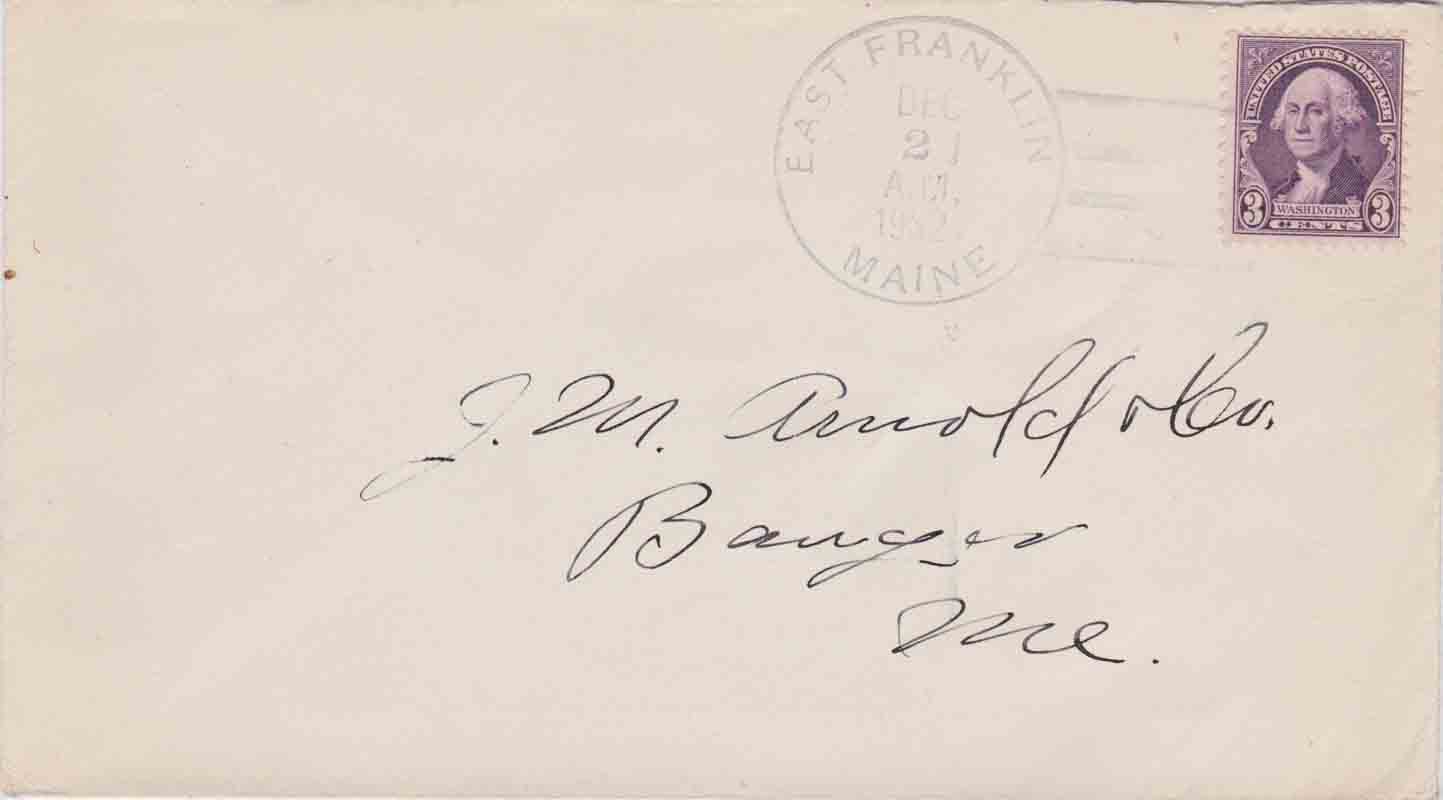 EAST FRANKLIN
DEC
21
A.M.
1932
MAINE
UNITED STATES POSTAGE
3 WASHINGTON 3
CENTS
J. M. Arnold & Co.
Bangor
Me.